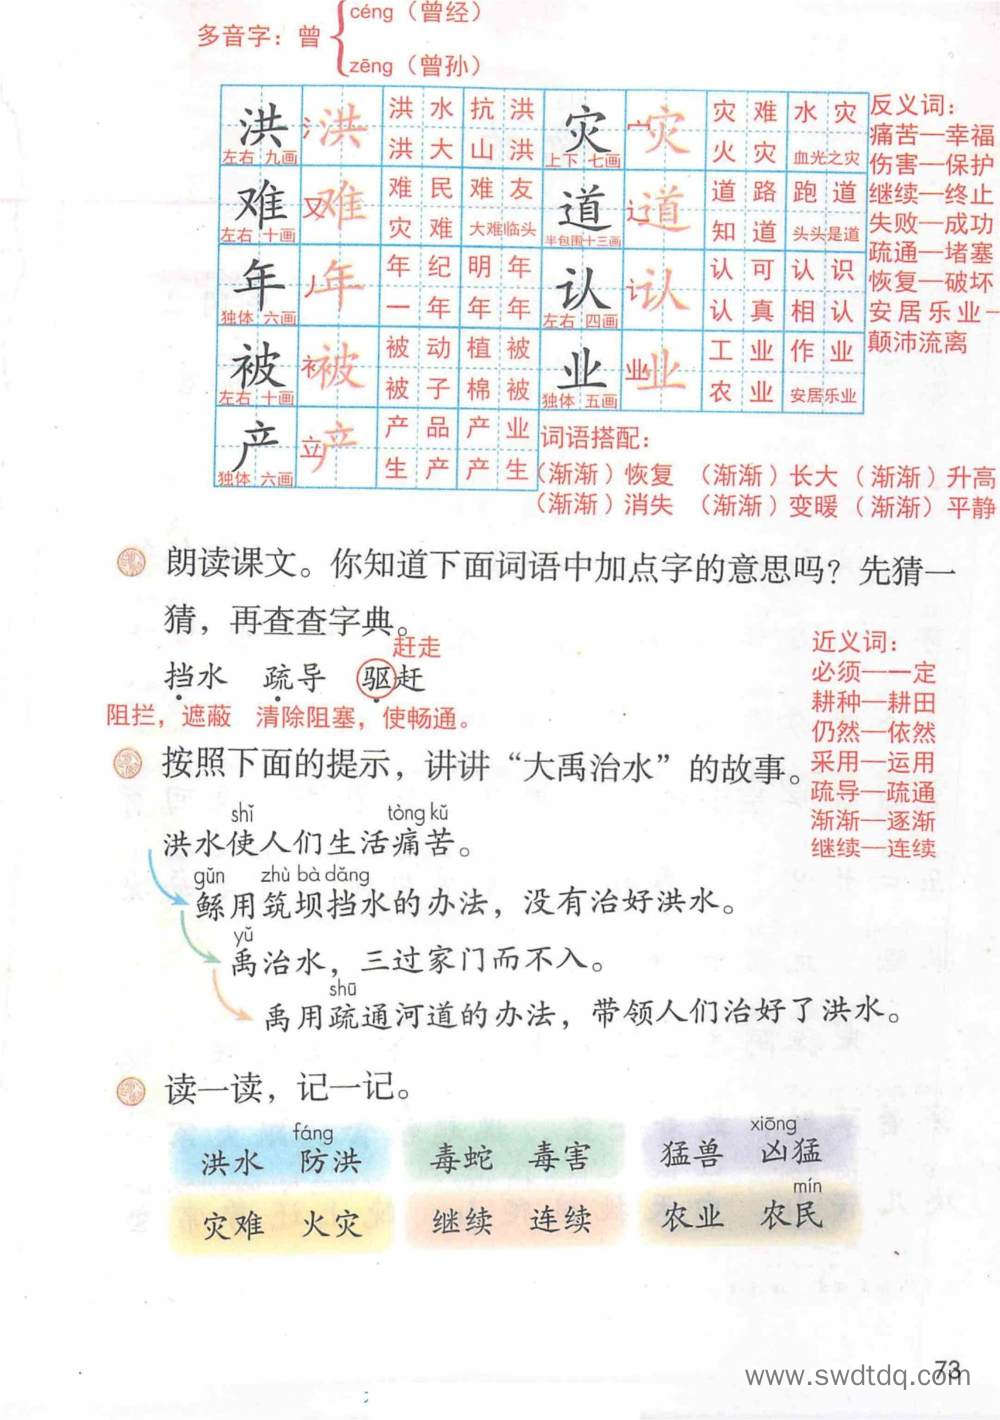 多音字：曾
céng（曾经）
zēng（曾孙）
洪 左右 九画 氵洪 洪水 抗洪 洪大 山洪
灾 上下 七画 宀灾 灾难 水灾 火灾 血光之灾
难 左右 十画 又难 难民 难友 灾难 大难临头
道 半包围 十三画 辶道 道路 跑道 知道 头头是道
年 独体 六画 丿年 年纪 明年 一年 年年
认 左右 四画 讠认 认可 认识 认真 相认
被 左右 十画 衤被 被动 植被 被子 棉被
业 独体 五画 业业 工业 作业 农业 安居乐业
产 独体 六画 立产 产品 产业 生产 产生
反义词：
痛苦—幸福
伤害—保护
继续—终止
失败—成功
疏通—堵塞
恢复—破坏
安居乐业—
颠沛流离
词语搭配：
（渐渐）恢复 （渐渐）长大（渐渐）升高
（渐渐）消失 （渐渐）变暖（渐渐）平静
朗读课文。你知道下面词语中加点字的意思吗？先猜一
猜，再查查字典。
赶走
挡水 疏导 驱赶
阻拦，遮蔽 清除阻塞，使畅通。
近义词：
必须—一定
耕种—耕田
仍然—依然
采用—运用
疏导—疏通
渐渐—逐渐
继续—连续
按照下面的提示，讲讲“大禹治水”的故事。
shǐ tòng kǔ
洪水使人们生活痛苦。
gǔn zhù bà dǎng
鲧用筑坝挡水的办法，没有治好洪水。
yǔ
禹治水，三过家门而不入。
shū
禹用疏通河道的办法，带领人们治好了洪水。
读一读，记一记。
fáng xiōng
洪水 防洪 毒蛇 毒害 猛兽 凶猛
mín
灾难 火灾 继续 连续 农业 农民
73
www.swdtdq.com